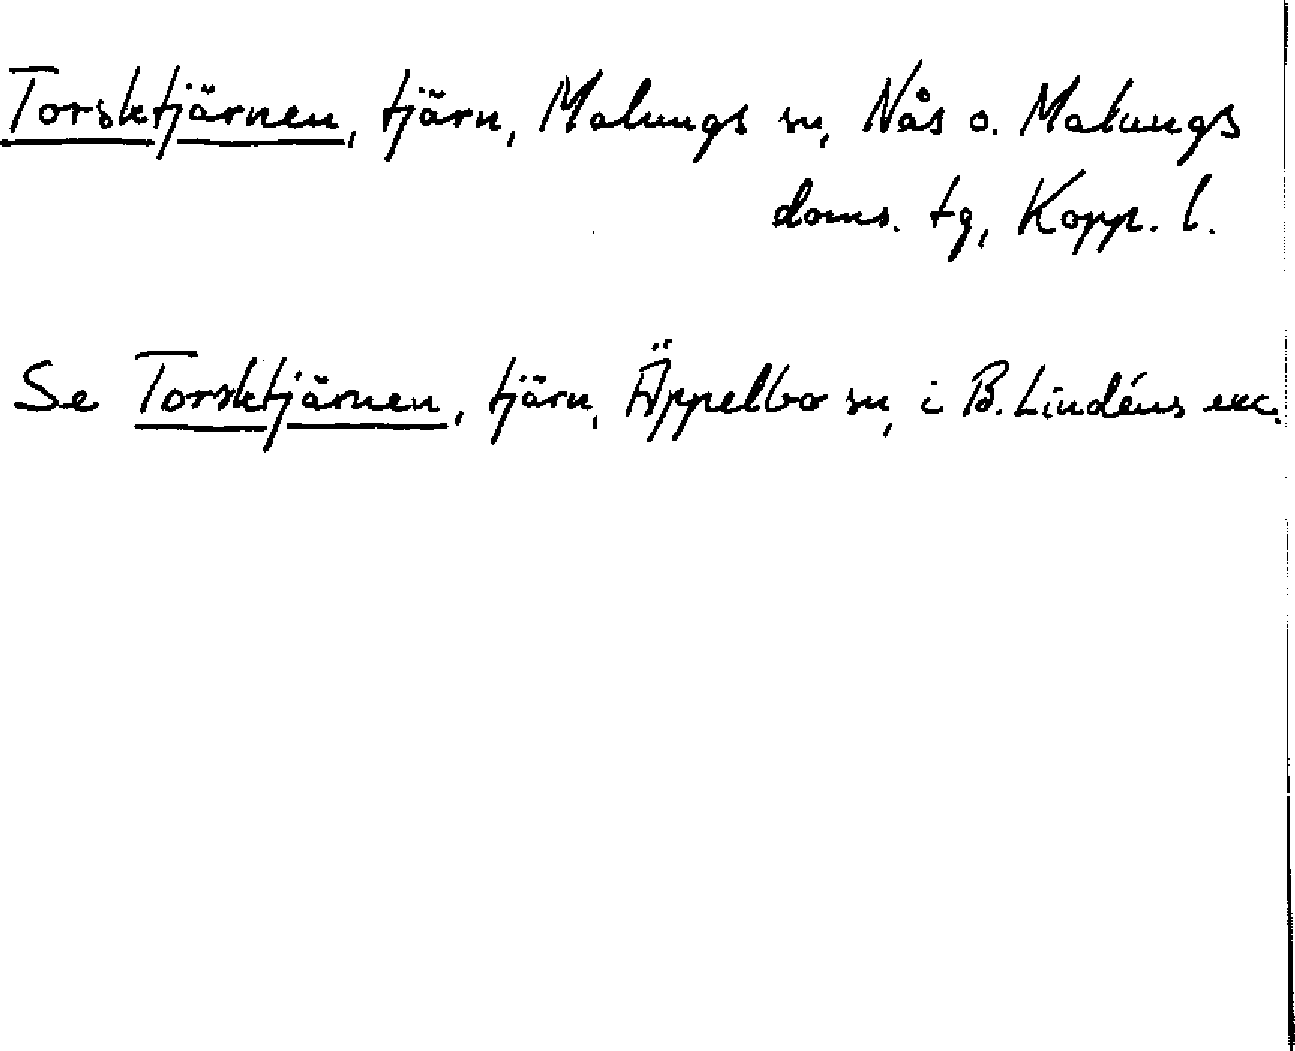 Torsktjärnen, tjärn, Malungs sn, Nås o. Malungs
doms. tg, Kopp. l.
Se Torsktjärnen, tjärn, Äppelbo sn, i B. Lindéns exc.